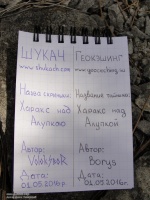 ШУКАЧ
www.shukach.com
Наша скринька:
Харакс над
Алупкою
Автор:
VolodkaaR
Дата:
01.05.2016р.
Геокэшинг
www.geocaching.su
Название тайника:
Харакс над
Алупкой
Автор:
Borys
Дата:
01.05.2016г.